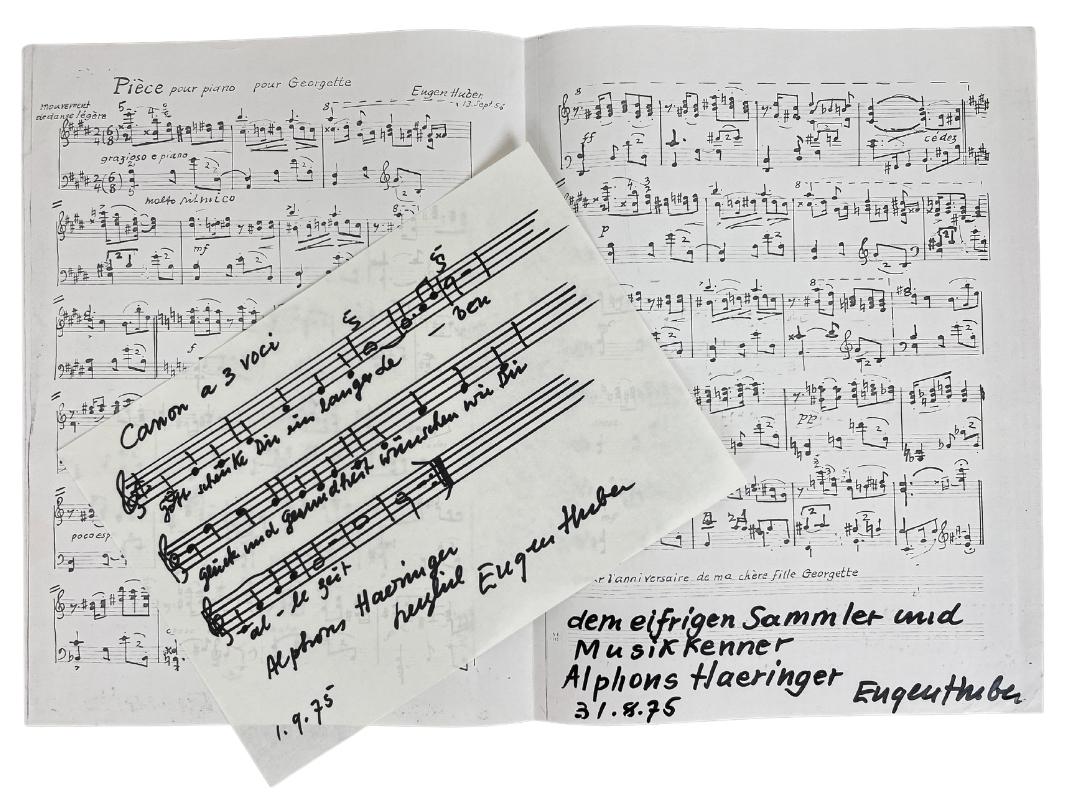 Pièce pour piano pour Georgette
Eugen Huber
13. Sept 56
mouvement
de danse légère
grazioso e piano
molto ritmico
mf
f
poco esp
ff
cédez
p
pp
l'anniversaire de ma chère fille Georgette
dem eifrigen Sammler und
Musikkenner
Alphons Haeringer
31.8.75
Eugen Huber
Canon a 3 voci
Gott schenke Dir ein langes Le - ben
Glück und Gesundheit wünschen wir Dir
al - le Zeit
Alphons Haeringer
herzlich
Eugen Huber
1.9.75